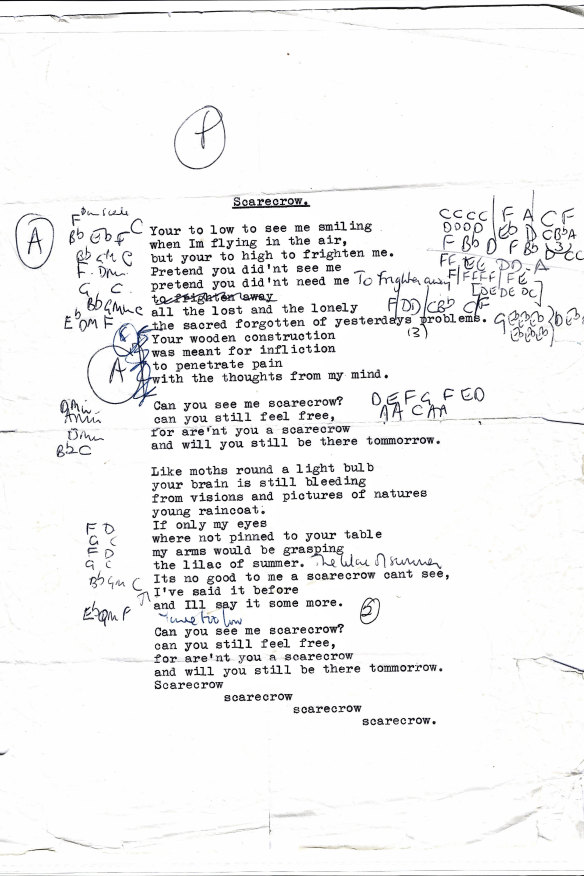 P
Scarecrow.
A
F
Bb Eb F C Your to low to see me smiling
when Im flying in the air,
Bb Gm C but your to high to frighten me.
F. Dm. Pretend you did'nt see me
G C. pretend you did'nt need me To frighten away
to frighten away
Bb Gm C all the lost and the lonely
Eb DM F the sacred forgotten of yesterdays problems.
(3)
Your wooden construction
was meant for infliction
A to penetrate pain
with the thoughts from my mind.
CCCC F A C F
DDDD Eb D CBbA
F Bb D F Bb D CC
FF EE DD-A
F FFFF FE
[DEDE DC]
F DD CBb C F
DMin. Can you see me scarecrow? D E F G F E D
AMin can you still feel free, AA C AA
DMin for are'nt you a scarecrow
Bb C and will you still be there tommorrow.
Like moths round a light bulb
your brain is still bleeding
from visions and pictures of natures
young raincoat.
F D If only my eyes
G C where not pinned to your table
F D my arms would be grasping
G C the lilac of summer. The lilac of summer
Bb Gm C Its no good to me a scarecrow cant see,
I've said it before
Eb DM F and Ill say it some more.
Can you see me scarecrow?
can you still feel free,
for are'nt you a scarecrow
and will you still be there tommorrow.
Scarecrow
scarecrow
scarecrow
scarecrow.